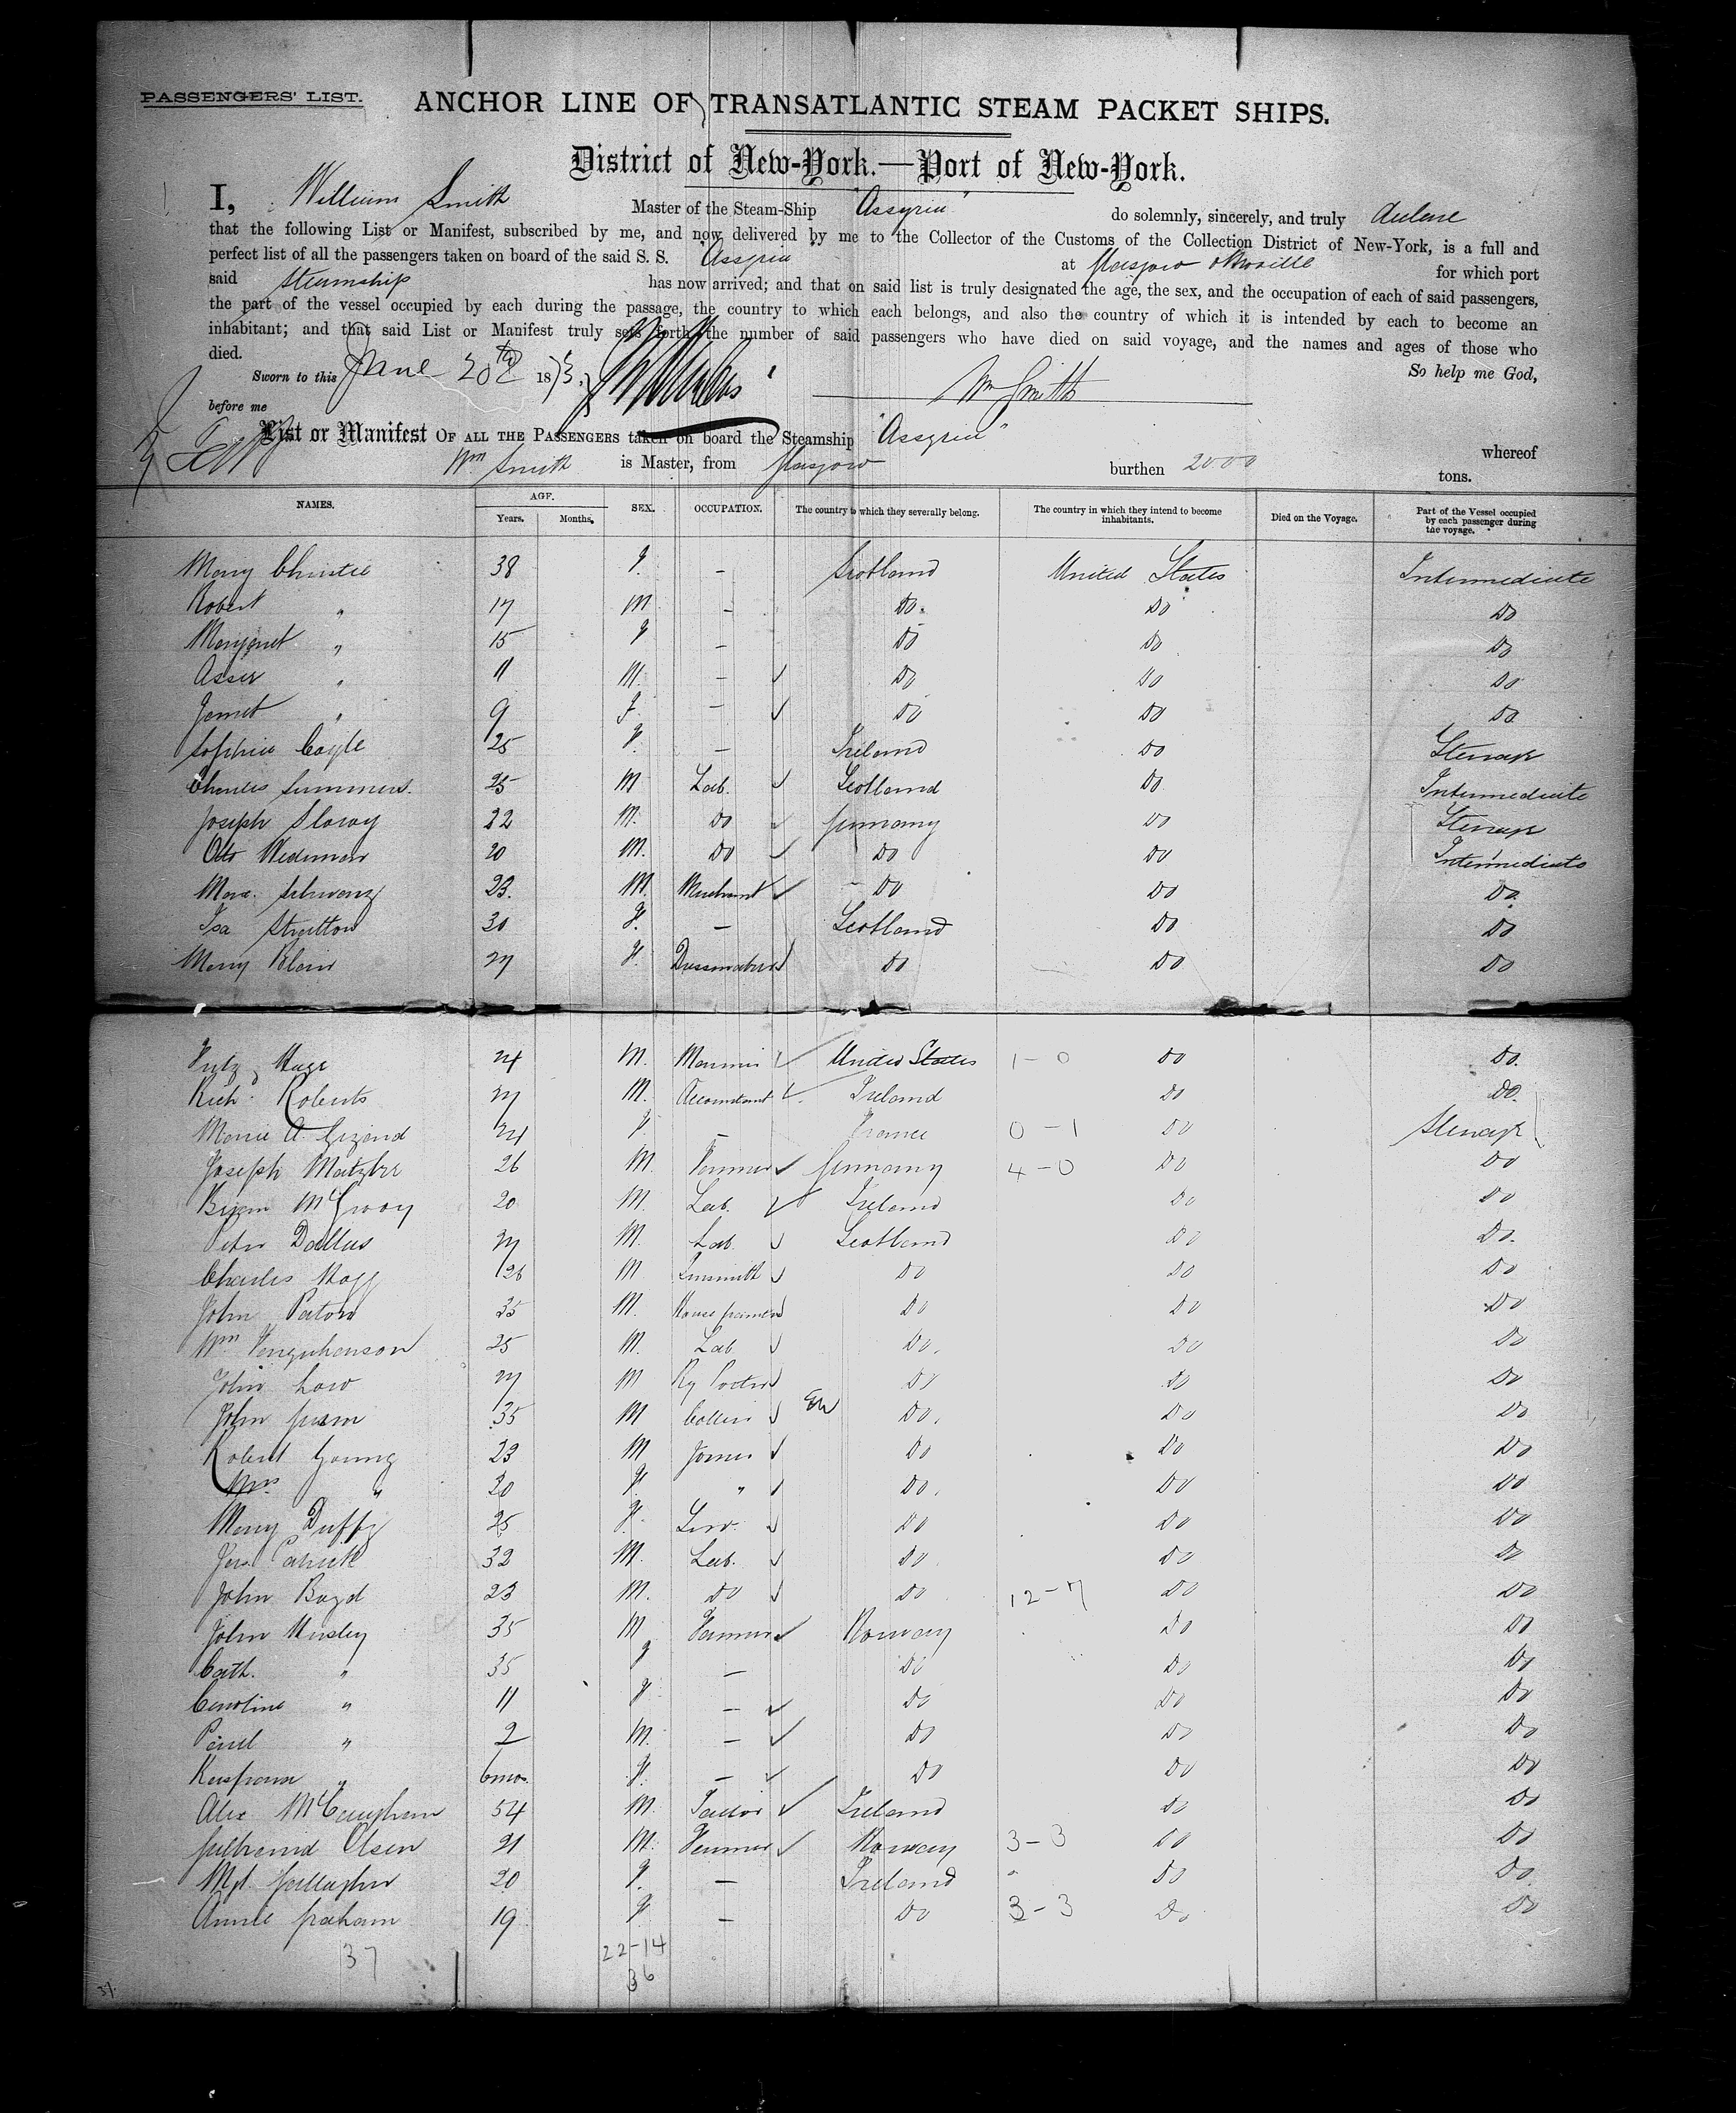 PASSENGERS' LIST.
ANCHOR LINE OF TRANSATLANTIC STEAM PACKET SHIPS.
District of New-York.—Port of New-York.
I, William Smith Master of the Steam-Ship "Assyria" do solemnly, sincerely, and truly declare
that the following List or Manifest, subscribed by me, and now delivered by me to the Collector of the Customs of the Collection District of New-York, is a full and
perfect list of all the passengers taken on board of the said S. S. "Assyria" at Glasgow & Moville for which port
said Steamship has now arrived; and that on said list is truly designated the age, the sex, and the occupation of each of said passengers,
the part of the vessel occupied by each during the passage, the country to which each belongs, and also the country of which it is intended by each to become an
inhabitant; and that said List or Manifest truly sets forth the number of said passengers who have died on said voyage, and the names and ages of those who
died.
So help me God,
Sworn to this June 20th 1873, Wm Smith
before me
List or Manifest OF ALL THE PASSENGERS taken on board the Steamship "Assyria" whereof
Wm Smith is Master, from Glasgow burthen 2000 tons.
NAMES. AGE. Years. Months. SEX. OCCUPATION. The country to which they severally belong. The country in which they intend to become inhabitants. Died on the Voyage. Part of the Vessel occupied by each passenger during the voyage.
Mary Christie 38 F. – Scotland United States Intermediate
Robert " 17 M – Do. Do Do
Margaret " 15 F – Do Do Do
" 11 M. – Do Do Do
Janet " 9 F. – Do Do Do
Sophia Coyle 25 F. – Ireland Do Steerage
Charles Summers. 25 M Lab. Scotland Do Intermediate
Joseph 22 M. Do Germany Do Steerage
Otto Wedeman 20 M. Do Do Do Intermediate
Max. Schwarz 23. M. Merchant Do Do Do.
Isa Stratton 30 F. – Scotland Do Do
Mary Blair 27 F. Dressmaker Do Do Do
24 M. Mariner United States 1-0 Do Do.
Richd. Roberts 27 M. Accountant Ireland Do Do.
Marie A. 24 F – France 0-1 Do Steerage
Joseph 26 M. Farmer Germany 4-0 Do Do
McEvoy 20 M. Lab. Ireland Do Do
Peter Dallas 27 M. Lab. Scotland Do Do.
Charles Hogg 26 M Tinsmith Do Do Do
John Paton 35 M. House painter Do Do Do
Wm Farquharson 25 M. Lab Do. Do Do
John Low 27 M Ry Porter Do Do Do
John 35 M Collier Do. Do Do
Robert Young 23 M Joiner Do Do Do
Mrs. " 20 F. " Do. Do Do
Mary Duffy 25 F. Serv. Do Do Do
Jas. Carrick 32 M. Lab. Do Do Do
John Boyd 23 M. Do Do 12-7 Do Do
John 35 M Farmer Norway Do Do
Cath. " 35 F – Do Do Do
Caroline " 11 F – Do Do Do
Paul " 2 M. – Do Do Do
" 6mos. F. – Do Do Do
Alex McCaughan 54 M. Tailor Ireland Do Do
Gulbrand Olsen 21 M. Farmer Norway 3-3 Do Do
Mgt. Gallagher 20 F. – Ireland " Do Do.
Annie Graham 19 F – Do 3-3 Do Do
37 22-14
36